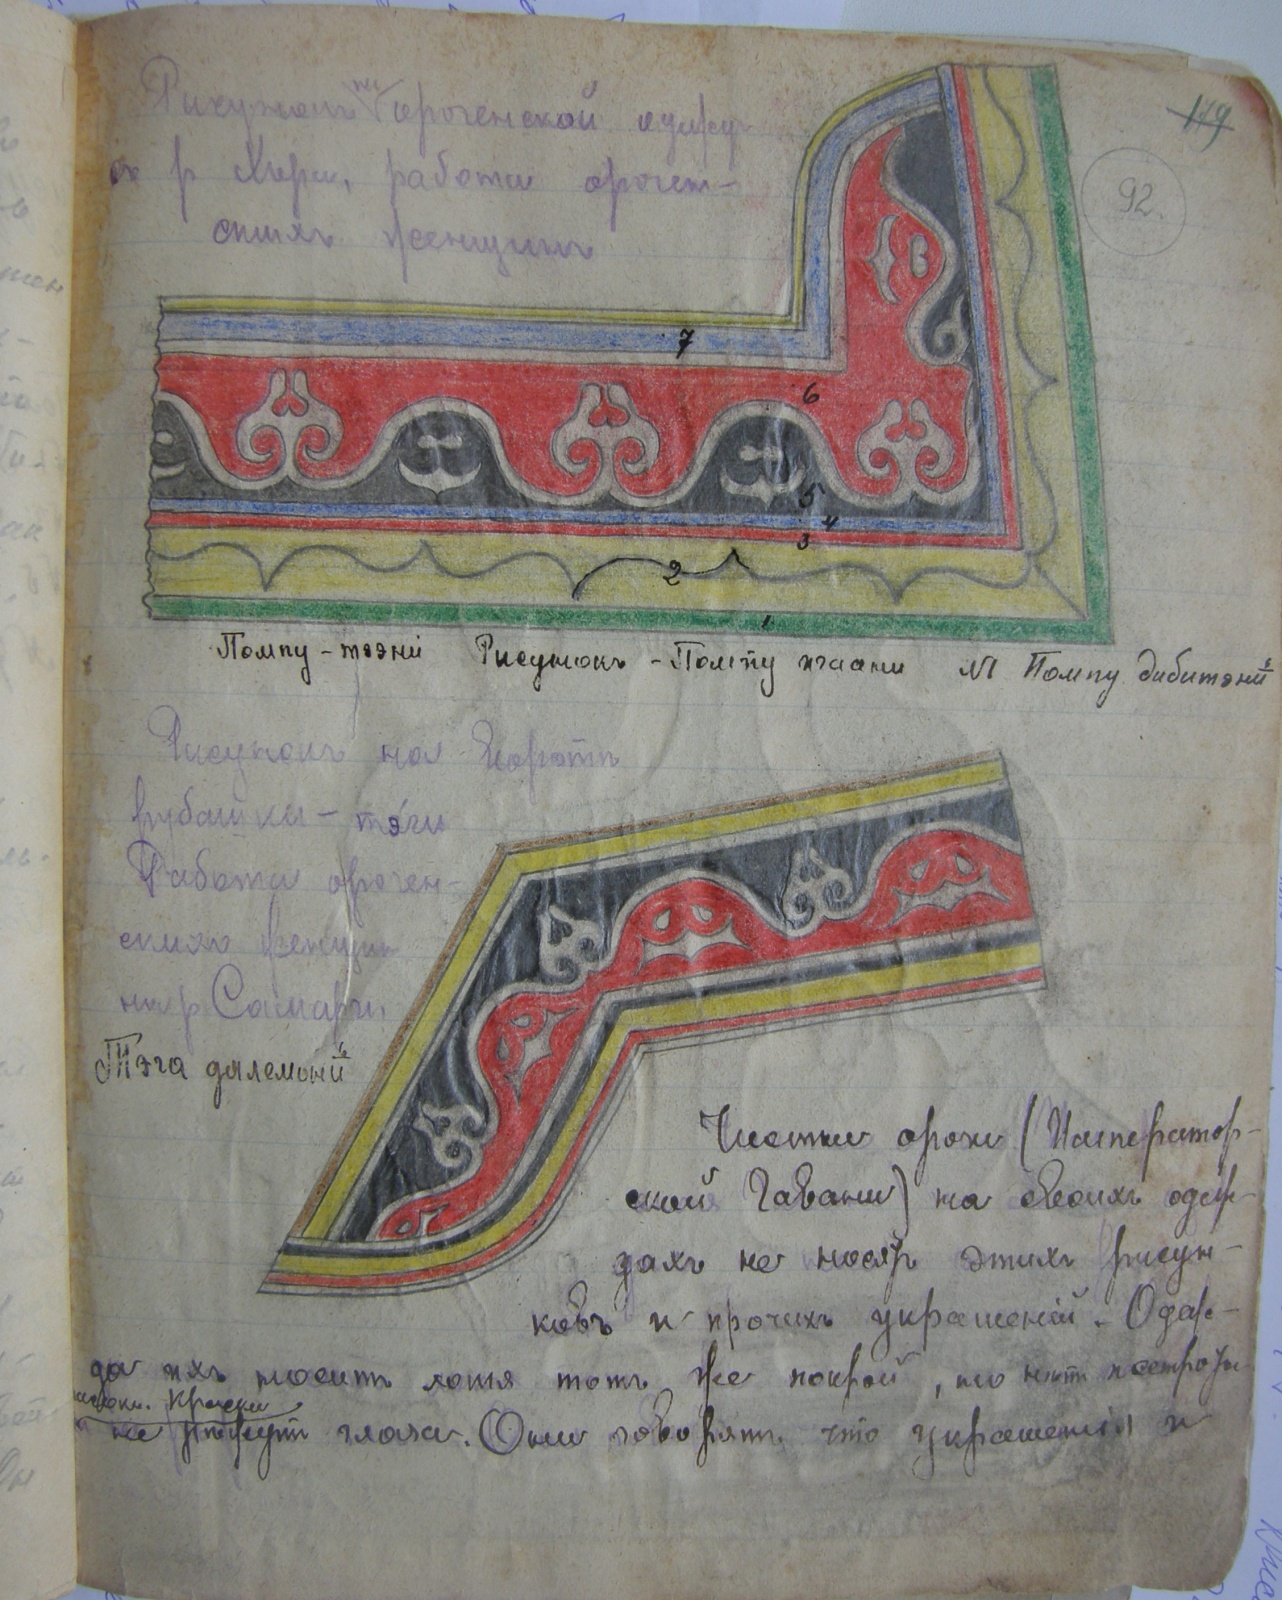 119
92.
Рисунокъ на ороченской одеж
съ р Хора, работа орочен-
скихъ женщинъ
7
6
5
4
3
2
1
Помпу-тээни Рисунокъ - Помпу №1 Помпу дибитэни
Рисунокъ на воротъ
рубашки - тэги
Работа орочен-
скихъ женщин
на р Самарги
Тэга далемони
Чистки орочи (Император-
ской Гавани) на своихъ одеж-
дахъ не носят этихъ рисун-
ковъ и прочихъ украшеній. Одеж-
да ихъ носитъ хотя тотъ же покрой, но нѣтъ пестроты
Краски
не глаза. Они говорятъ, что украшенія и